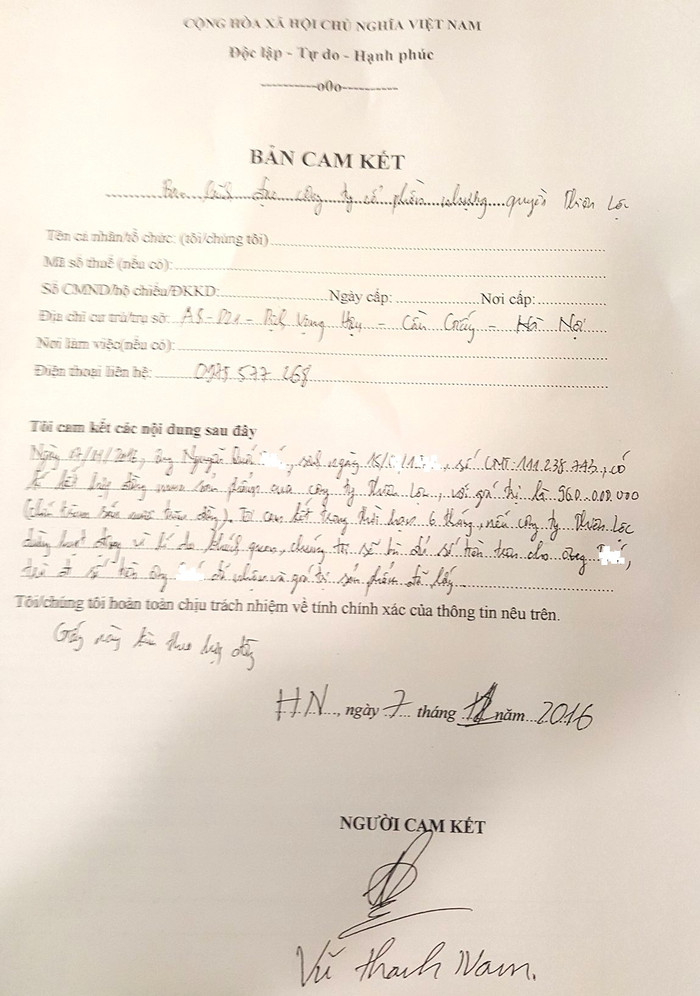 CỘNG HÒA XÃ HỘI CHỦ NGHĨA VIỆT NAM
Độc lập - Tự do - Hạnh phúc
----------o0o----------
BẢN CAM KẾT
công ty cổ phần nhượng quyền Thiên Lộc
Tên cá nhân/tổ chức: (tôi/chúng tôi)
Mã số thuế (nếu có):
Số CMND/hộ chiếu/ĐKKD: Ngày cấp: Nơi cấp:
Địa chỉ cư trú/trụ sở: Vọng Hậu - Cầu Giấy - Hà Nội
Nơi làm việc(nếu có):
Điện thoại liên hệ: 0975 577 268
Tôi cam kết các nội dung sau đây
Ngày 17/11/2016, ông Nguyễn, sinh ngày, số CMT: 111.238.743, có
kí kết hợp đồng mua sản phẩm của công ty Thiên Lộc, với giá trị là 960.000.000
(chín trăm sáu mươi triệu đồng). Tôi cam kết trong thời hạn 6 tháng, nếu công ty Thiên Lộc
dừng hoạt động vì lí do khách quan, chúng tôi sẽ số tiền trên cho ông,
trừ đi số tiền ông đã nhận và giá trị sản phẩm đã lấy
Tôi/chúng tôi hoàn toàn chịu trách nhiệm về tính chính xác của thông tin nêu trên.
Giấy này kèm theo hợp đồng
HN, ngày 7 tháng 12 năm 2016
NGƯỜI CAM KẾT
Vũ Thanh Nam.